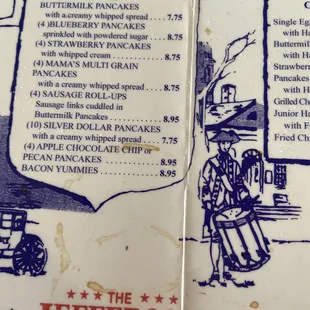 BUTTERMILK PANCAKES
with a creamy whipped spread . . . . 7.75
(4 )BLUEBERRY PANCAKES
sprinkled with powdered sugar . . . . 8.75
(4) STRAWBERRY PANCAKES
with whipped cream . . . . . . . . . . . . 8.75
(4) MAMA'S MULTI GRAIN
PANCAKES
with a creamy whipped spread . . . . 8.75
(4) SAUSAGE ROLL-UPS
Sausage links cuddled in
Buttermilk Pancakes . . . . . . . . . . . . 8.95
(10) SILVER DOLLAR PANCAKES
with a creamy whipped spread . . . . 7.75
(4) APPLE CHOCOLATE CHIP or
PECAN PANCAKES . . . . . . . . . . . . 8.95
BACON YUMMIES . . . . . . . . . . . . 8.95
THE
Single Eg
with Ha
Buttermil
with Ha
Strawberr
Pancake
with Ha
Grilled Ch
Junior Ha
with F
Fried Ch